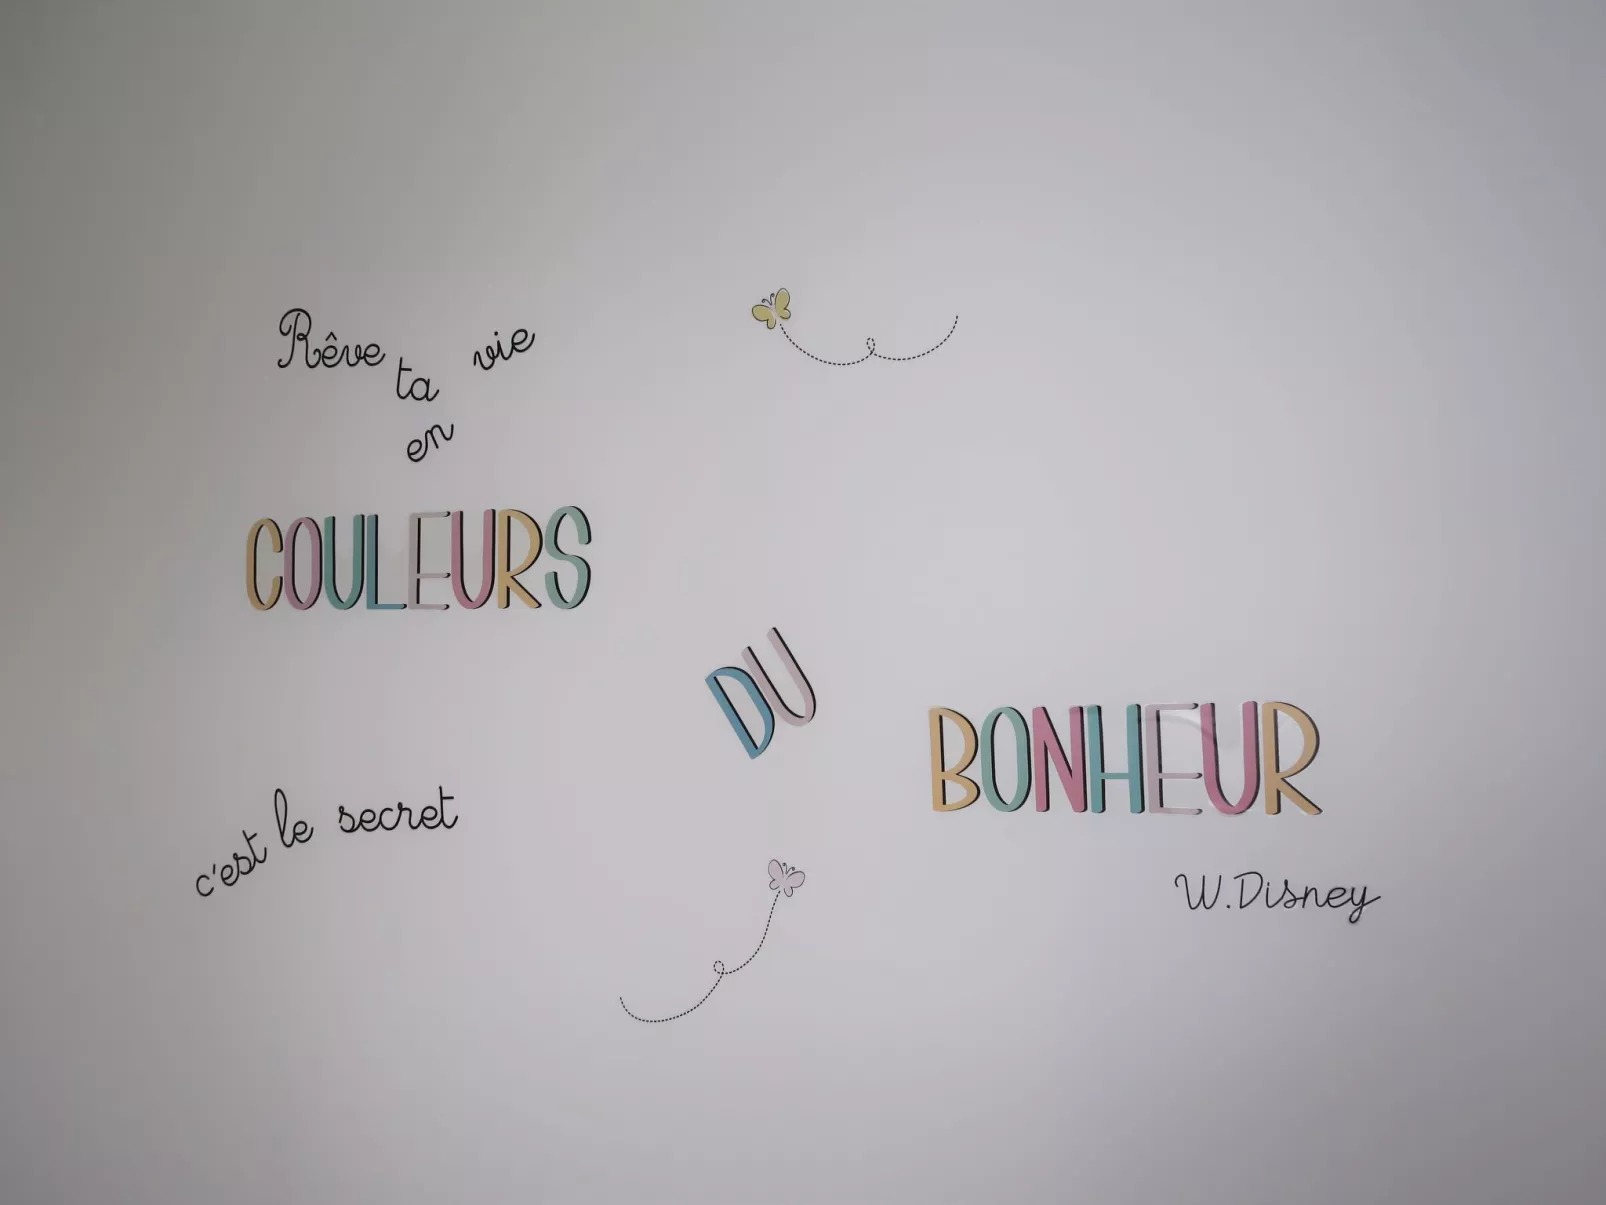 Rêve ta vie
en
COULEURS
c'est le secret
DU
BONHEUR
W.Disney